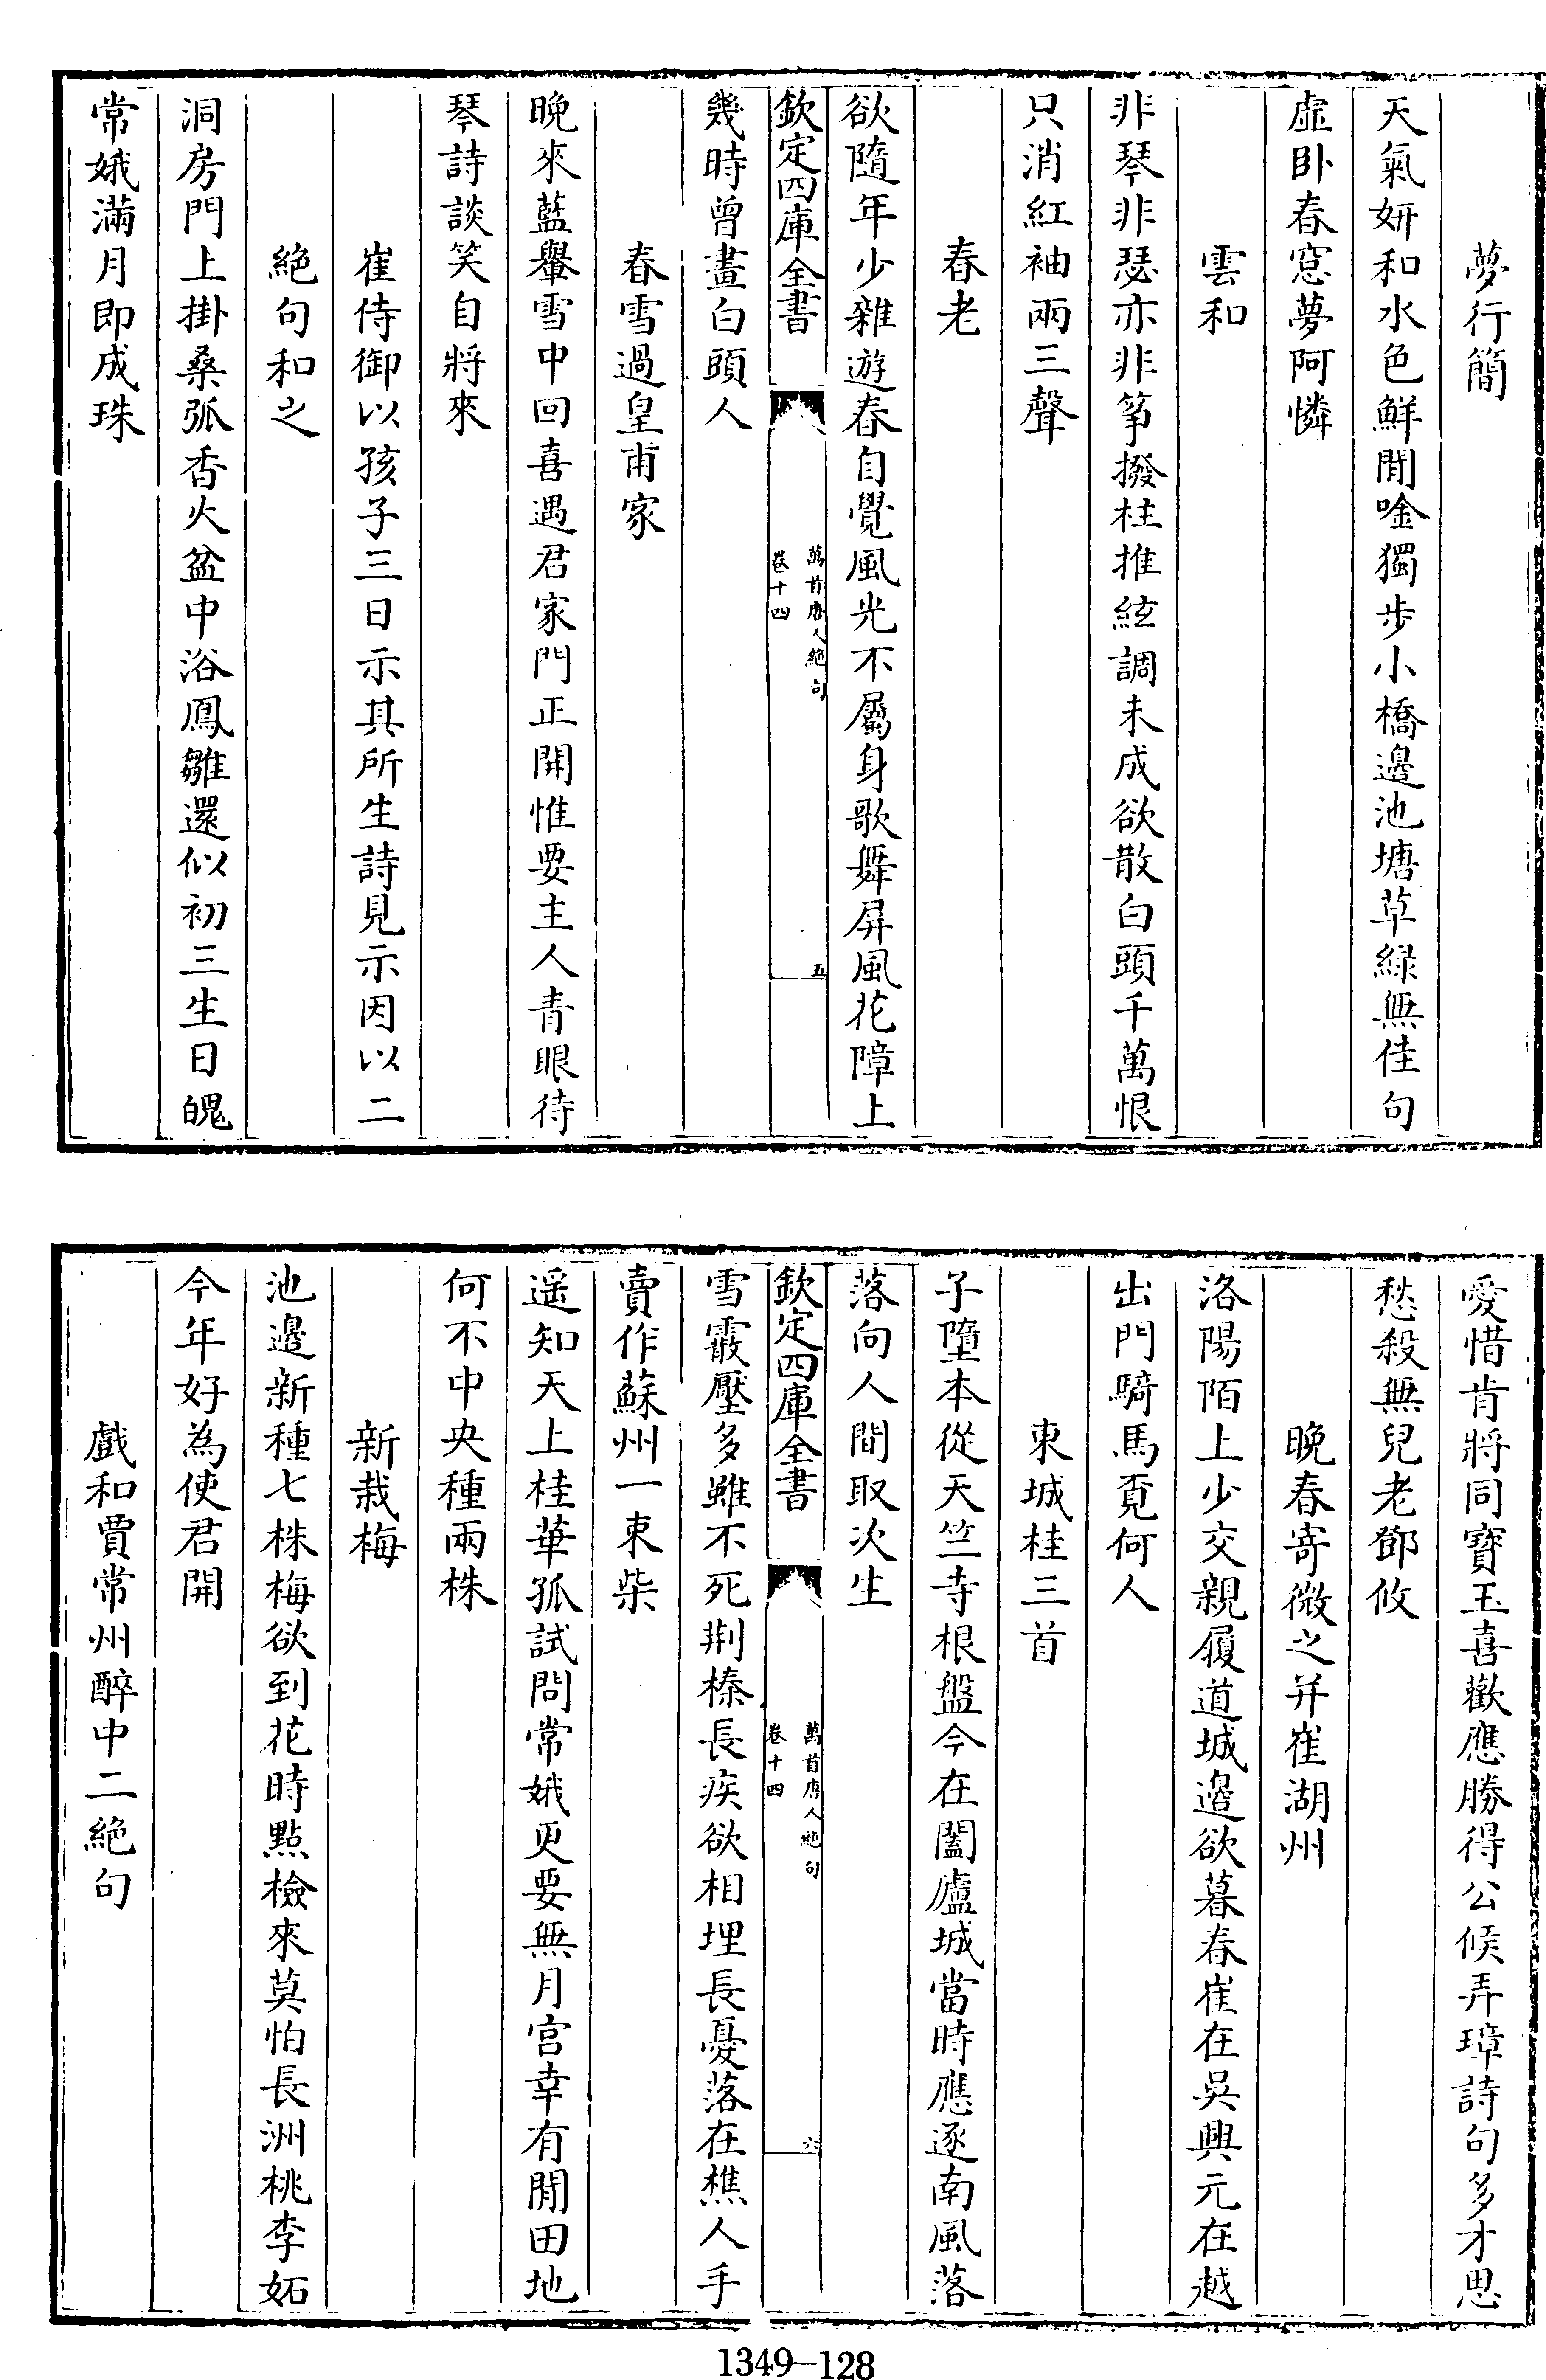 夢行簡
天氣妍和水色鮮閒唫獨步小橋邊池塘草緑無佳句
虛卧春窓夢阿憐
雲和
非琴非瑟亦非筝撥柱推絃調未成欲散白頭千萬恨
只消紅袖兩三聲
春老
欲隨年少雜遊春自覺風光不屬身歌舞屏風花障上
欽定四庫全書
萬首唐人絶句
卷十四
五
幾時曾畫白頭人
春雪過皇甫家
晚來藍轝雪中回喜遇君家門正開惟要主人青眼待
琴詩談笑自將來
崔侍御以孩子三日示其所生詩見示因以二
絶句和之
洞房門上掛桑弧香火盆中浴鳳雛還似初三生日魄
常娥滿月即成珠
愛惜肯將同寶玉喜歡應勝得公候弄璋詩句多才思
愁殺無兒老鄧攸
晚春寄微之并崔湖州
洛陽陌上少交親履道城邉欲暮春崔在吳興元在越
出門騎馬覔何人
東城桂三首
子墮本從天竺寺根盤今在闔廬城當時應逐南風落
落向人間取次生
欽定四庫全書
萬首唐人絶句
卷十四
六
雪霰壓多雖不死荆榛長疾欲相埋長憂落在樵人手
賣作蘇州一束柴
遥知天上桂華孤試問常娥更要無月宮幸有閒田地
何不中央種兩株
新栽梅
池邉新種七株梅欲到花時點檢來莫怕長洲桃李妬
今年好為使君開
戲和賈常州醉中二絶句
1349—128